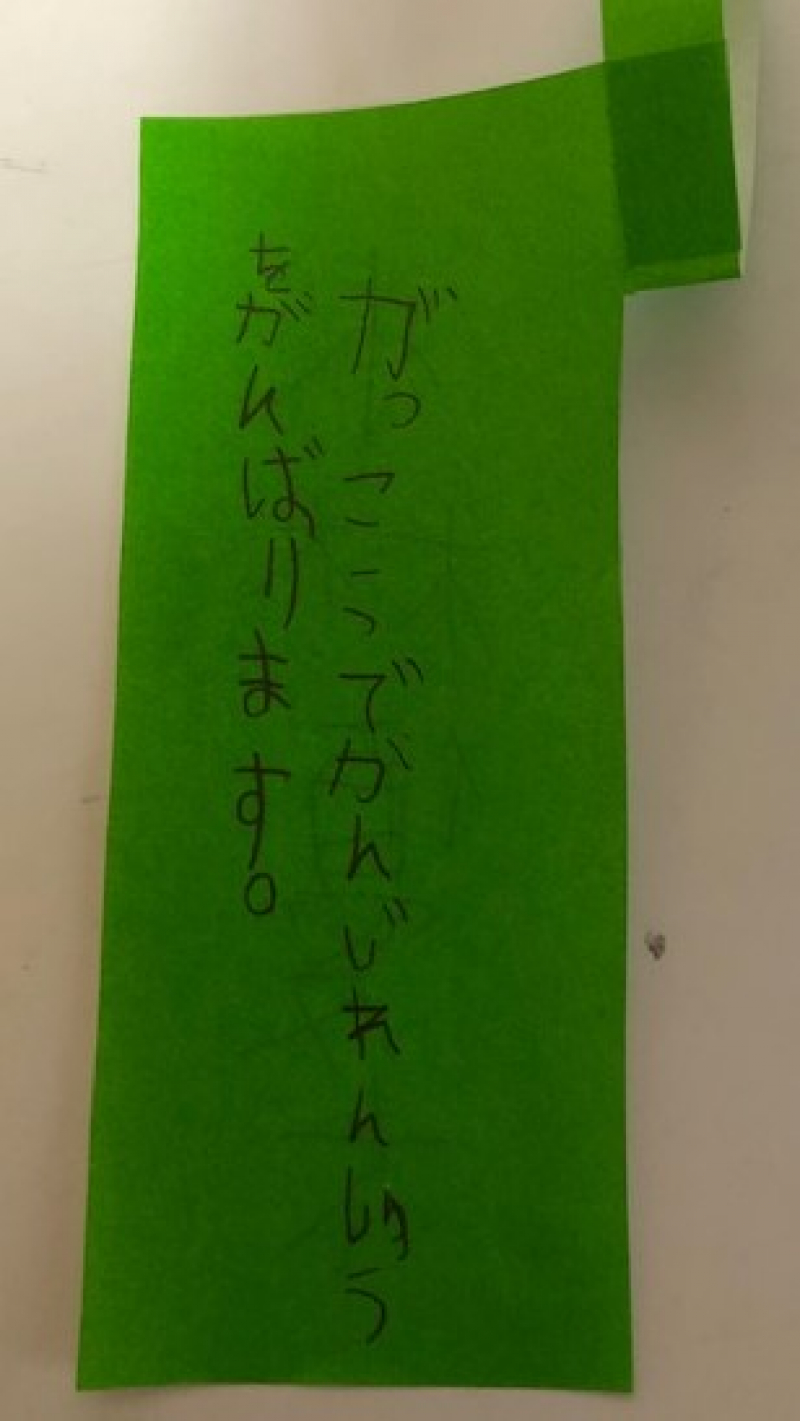 がっこうでかんじれんしゅう
をがんばります。